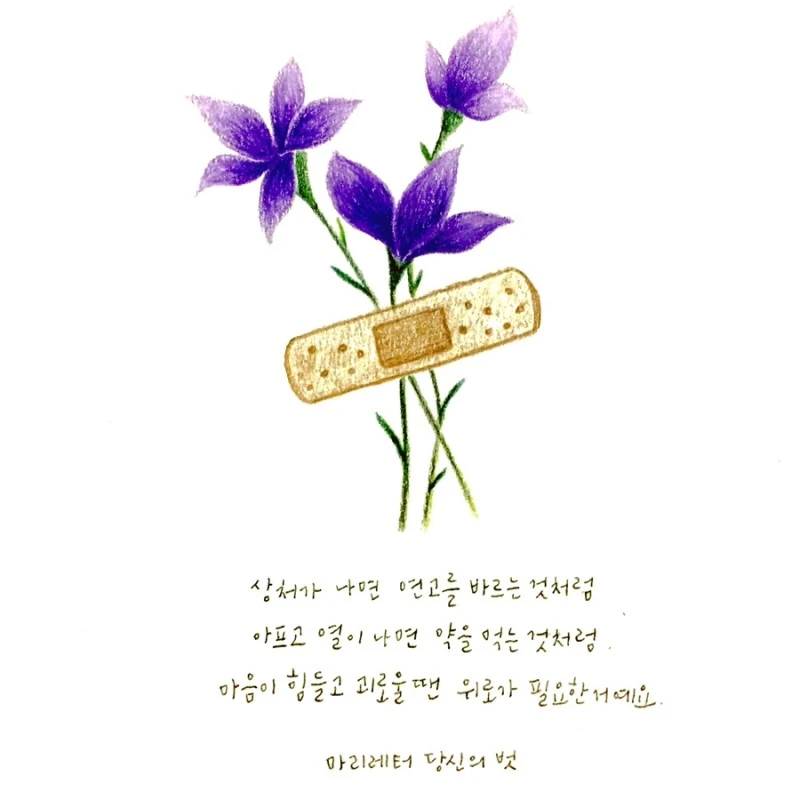 상처가 나면 연고를 바르는 것처럼
아프고 열이 나면 약을 먹는 것처럼.
마음이 힘들고 괴로울 땐 위로가 필요한 거예요.
마리레터 당신의 벗